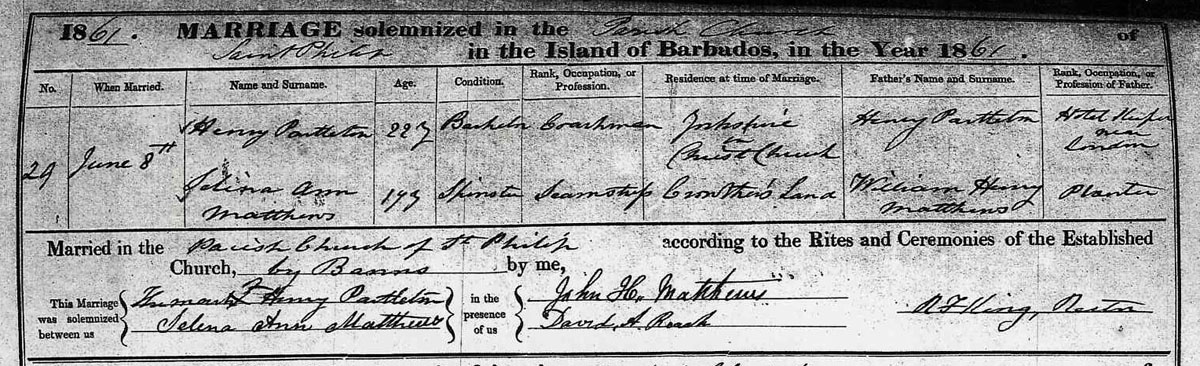 1861. MARRIAGE solemnized in the Parish Church of
Saint Philip in the Island of Barbados, in the Year 1861.
No. When Married. Name and Surname. Age. Condition. Rank, Occupation, or Profession. Residence at time of Marriage. Father's Name and Surname. Rank, Occupation, or Profession of Father.
29 June 8th Henry Partleton 22 y Bachelor Coachman Yorkshire Ch Christ Church Henry Partleton Hotel Keeper near London
Selina Ann Matthews 19 y Spinster Seamstress Crowther's Land William Henry Matthews Planter
Married in the Parish Church of St Philip according to the Rites and Ceremonies of the Established
Church, by Banns by me,
This Marriage was solemnized between us Henry Partleton in the presence of us John H. Matthews
Selina Ann Matthews David A. Roach
Rector